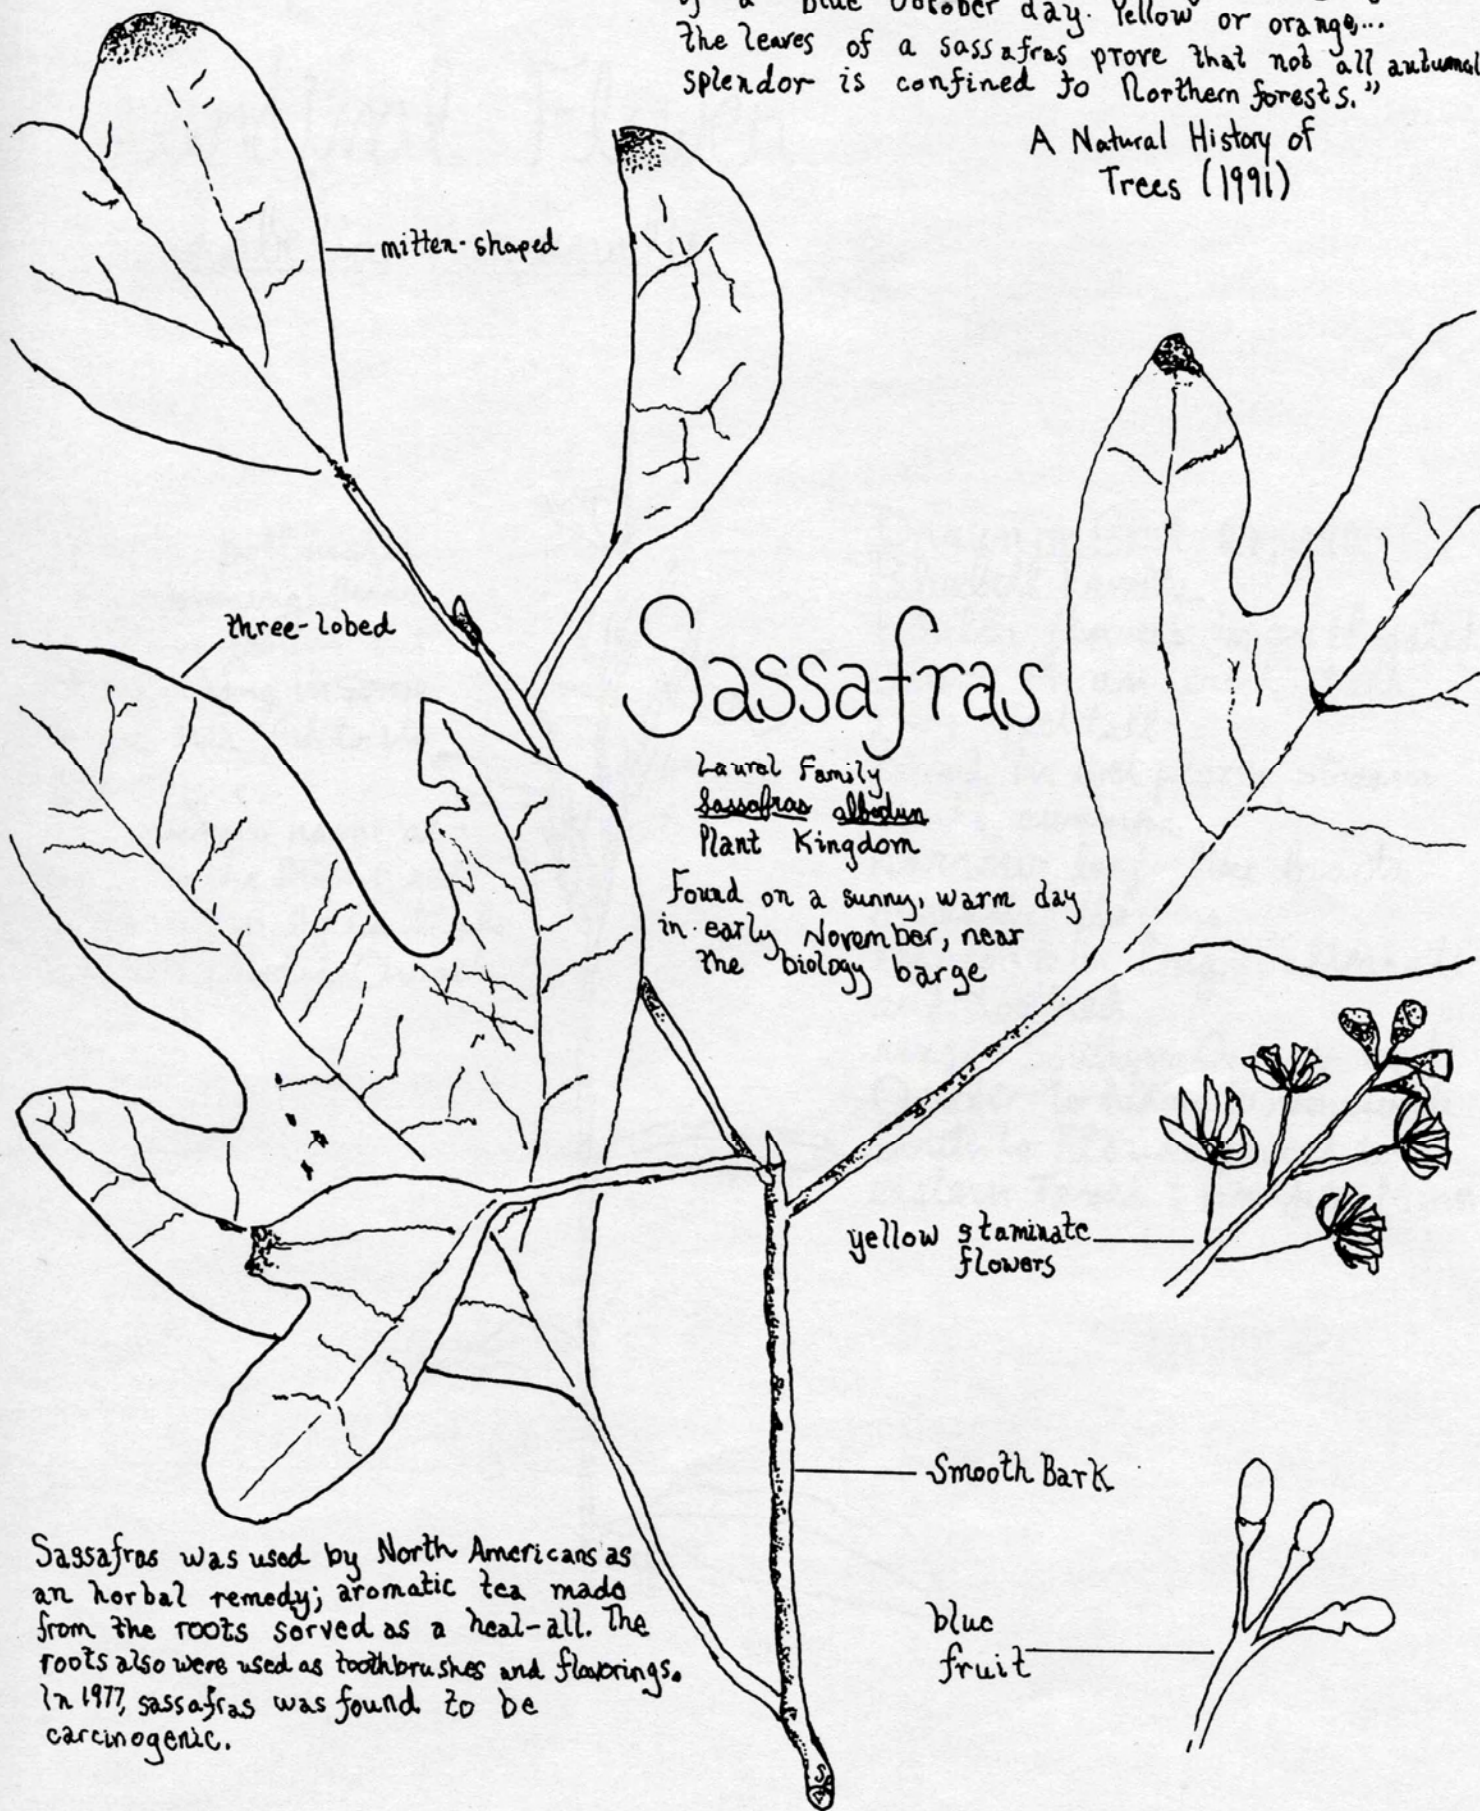 a blue October day. Yellow or orange,...
the leaves of a sassafras prove that not all autumnal
splendor is confined to Northern forests."
A Natural History of
Trees (1991)
mitten-shaped
three-lobed
Sassafras
Laurel Family
Sassafras albidun
Plant Kingdom
Found on a sunny, warm day
in early November, near
the biology barge
yellow staminate
flowers
Smooth Bark
blue
fruit
Sassafras was used by North Americans as
an herbal remedy; aromatic tea made
from the roots served as a heal-all. The
roots also were used as toothbrushes and flavorings.
In 1977, sassafras was found to be
carcinogenic.